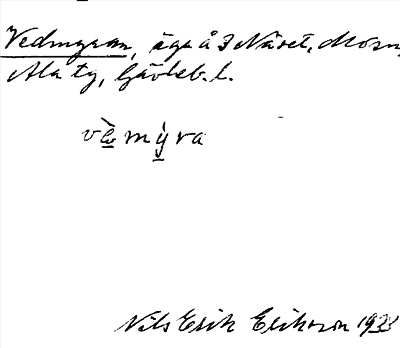 Vedmyran, äga å 3 Näset, Mom,
Ala ty, Gävleb. l.
vè mỳra
Nils Erik Erikson 1933